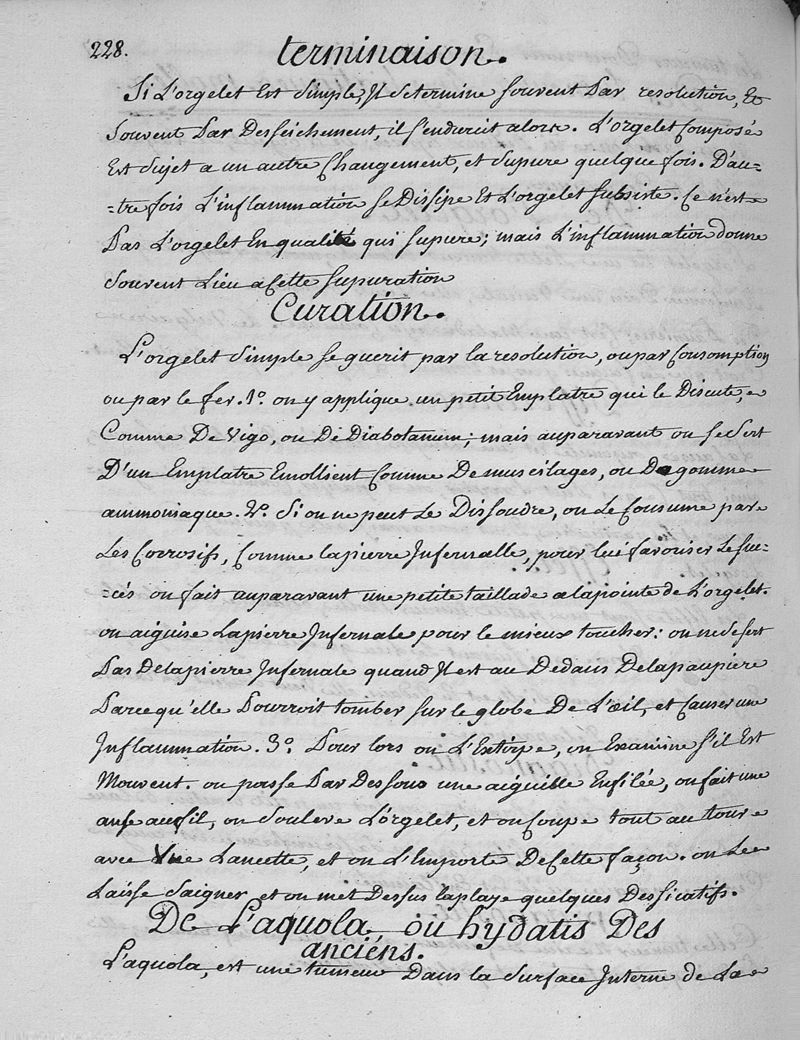 228.
terminaison.
Si L'orgelet Est Simple, Il setermine souvent Par resolution, Et
souvent Par Desseichement, il s'endurcit alors. L'orgelet Composé
Est sujet a un autre Changement, et supure quelque fois. D'au-
-tre fois L'inflammation se Dissipe Et L'orgelet subsiste. Ce n'est
Pas L'orgelet En qualité qui supure; mais L'inflammation donne
souvent Lieu a Cette supuration
Curation.
L'orgelet simple se guerit par la resolution, ou par Consomption
ou par le fer. 1.º on y applique un petit Emplatre qui le Discute,
Comme De Vigo, ou De Diabotanum; mais auparavant on se sert
D'un Emplatre Emollient Comme De muscilages, ou De gomme
ammoniaque. 2.º Si on ne peut Le Dissoudre, on Le Consume par
Les Corrosifs, Comme lapierre Infernalle, pour lui favoriser Le suc-
-cés on fait auparavant une petite taillade a la pointe de L'orgelet.
on aiguise Lapierre Infernale pour le mieux toucher: on ne se sert
Pas Delapierre Infernale quand Il est au Dedans Delapaupiere
Parcequ'elle Pourroit tomber sur le globe De L'œil, et Causer une
Inflammation. 3.º Pour lors on L'Extirpe, on Examine s'il Est
Mouvent. on passe Par Dessous une aiguille Enfilée, on fait une
anse aufil, on souleve L'orgelet, et on Coupe tout au tour
avec Une Lancette, et on L'Emporte De Cette façon. on Le
Laisse saigner et on met Dessus laplaye quelques Dessicatifs.
De L'aquola, ou hydatis Des
anciéns.
L'aquola, est une tumeur Dans la surface Interne de La